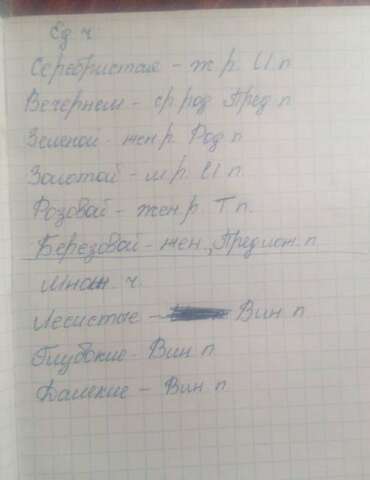 Ед ч.
Серебристая - ж.р. И.п
Вечернем - ср.род Пред п
Зеленой - жен р. Род п
Золотой - м р. И п.
Розовой - жен р. Т п.
Березовой - жен., Предлож. п.
Множ. ч.
Лесистые - Вин. п
Глубокие - Вин. п
Далекие - Вин. п